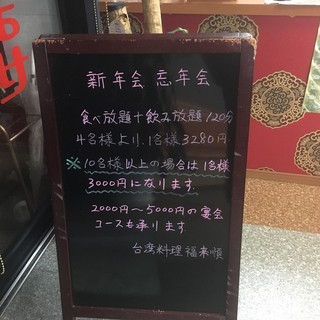 新年会 忘年会
食べ放題+飲み放題 120分
4名様より、1名様3280円
※10名様以上の場合は1名様
3000円になります
2000円〜5000円の宴会
コースも承ります
台湾料理 福来順